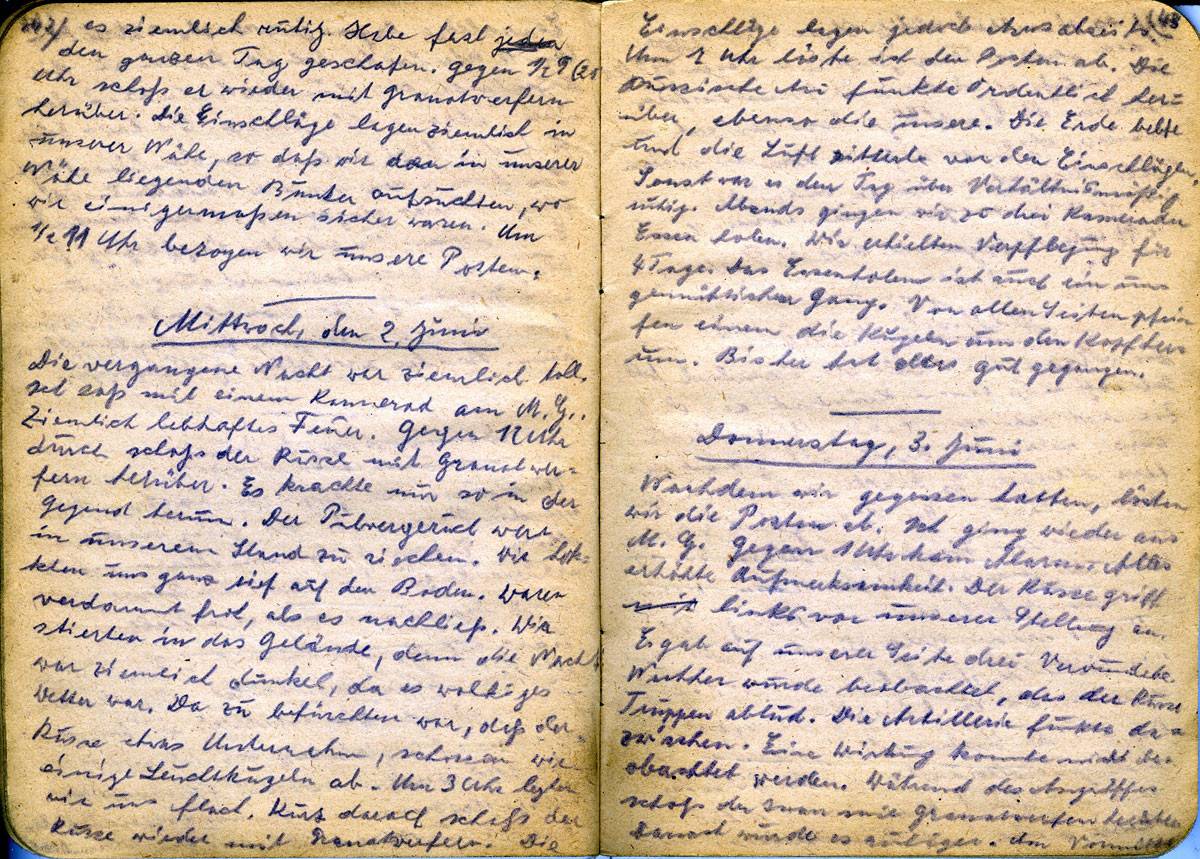 42/
es ziemlich ruhig. Habe fast jeden
den ganzen Tag geschafen. Gegen 1/2 9 (20
Uhr schoß er wieder mit Granatwerfern
herüber. Die Einschläge lagen ziemlich in
unserer Nähe, so daß wir den in unserer
Nähe liegenden Bunker aufsuchten, wo
wir einigermaßen sicher waren. Um
1/2 11 Uhr bezogen wir unsere Posten.
Mittwoch, den 2. Juni
Die vergangene Nacht war ziemlich toll.
saß mit einem Kamerad am M.G..
Ziemlich lebhaftes Feuer. Gegen 12 Uhr
durch schoß der Russe mit Granatwer-
fern herüber. Es krachte nur so in der
Gegend herum. Der Pulvergeruch war
in unserem Stand zu riechen. Wir hok-
kten uns ganz tief auf den Boden. Waren
verdammt froh, als es nachließ. Wir
stierten in das Gelände, denn die Nacht
war ziemlich dunkel, da es wolkiges
Wetter war. Da zu befürchten war, daß der
Russe etwas Unternehm, schossen wir
einige Leuchtkugeln ab. Um 3 Uhr legten
wir uns flach. Kurz darauf schoß der
Russe wieder mit Granatwerfern. Die
43
Einschläge lagen jedoch
Um 1 Uhr löste ich den Posten ab. Die
Russische Ari funkte Ordentlich herü-
über, ebenso die unsere. Die Erde bebte
und die Luft zitterte vor den Einschlägen,
Sonst war es den Tag über Verhältnismäßig
ruhig. Abends gingen wir zu drei Kameraden
Essen holen. Wir erhielten Verpflegung für
4 Tage. Das Essenholen ist auch ein un
gemütlicher Gang. Von allen Seiten pfei-
fen einem die Kugeln um den Kopf her
um. Bisher hat alles gut gegangen.
Donnerstag, 3. Juni
Nachdem wir gegessen hatten, lösten
wir die Posten ab. Ich ging wieder ans
M.G. Gegen 1 Uhr kam Alarm. Alles
erhöhte Aufmerksamkeit. Der Russe griff
links vor unserer Stellung an.
Es gab auf unserer Seite drei Verwundete.
Weither wurde beobachtet, das der Russe
Truppen ablud. Die Artillerie funkte da-
zwischen. Eine Wirkung konnte nicht be-
obachtet werden. Während des Angriffes
schoß der Iwan mit Granatwerfern herüber
Danach wurde es ruhiger. Am Vormittag